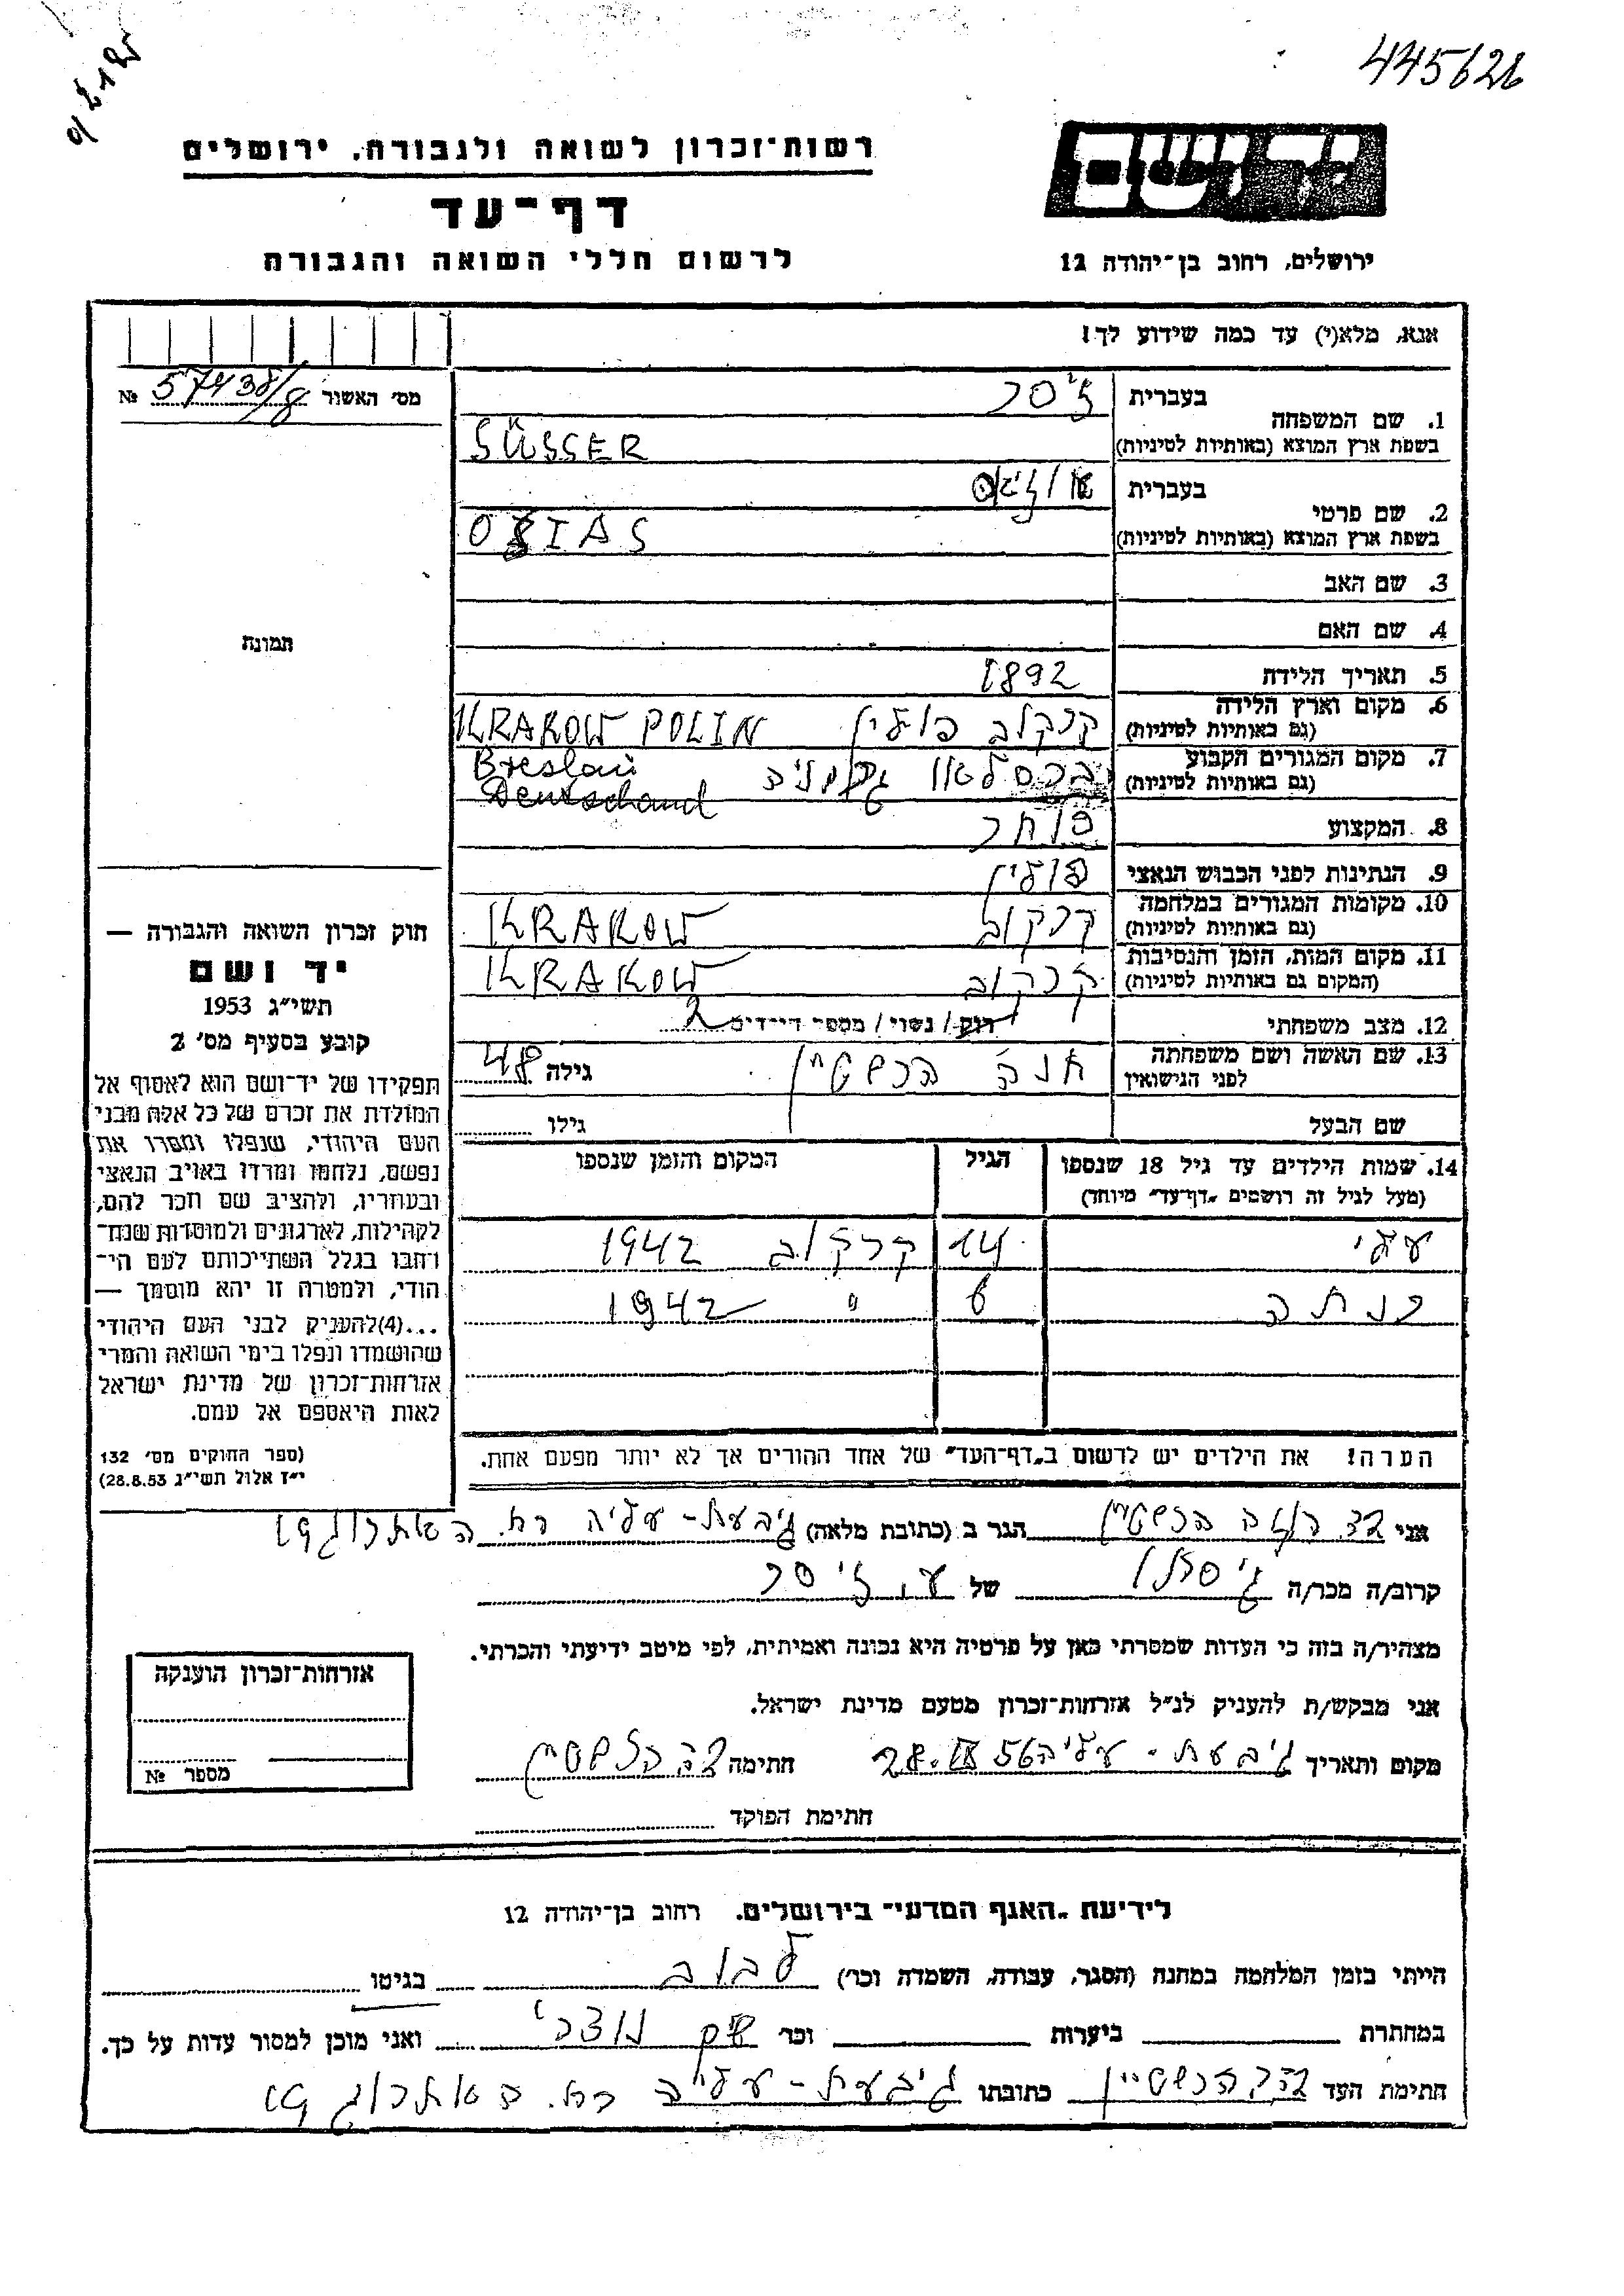 445626
רשות־זכרון לשואה ולגבורה, ירושלים
דף־עד
לרשום חללי השואה והגבורה
יד ושם
ירושלים, רחוב בן־יהודה 12
אנא, מלא(י) עד כמה שידוע לך!
מס׳ האשור 57438/8 №
תמונה
1. שם המשפחה
בעברית זיסר
בשפת ארץ המוצא (באותיות לטיניות) SÜSSER
2. שם פרטי
בעברית
בשפת ארץ המוצא (באותיות לטיניות) OSIAS
3. שם האב
4. שם האם
5. תאריך הלידה 1892
6. מקום וארץ הלידה
(גם באותיות לטיניות) קרקוב פולין KRAKOW POLIN
7. מקום המגורים הקבוע
(גם באותיות לטיניות) ברסלאו גרמניה Breslau
Deutschand
8. המקצוע סוחר
9. הנתינות לפני הכבוש הנאצי פולין
10. מקומות המגורים במלחמה
(גם באותיות לטיניות) קרקוב KRAKOW
11. מקום המות, הזמן והנסיבות
(המקום גם באותיות לטיניות) קרקוב KRAKOW
12. מצב משפחתי רוק/ נשוי/ מספר הילדים 2
13. שם האשה ושם משפחתה
לפני הנישואין חנה הרשטיין גילה 48
שם הבעל גילו
14. שמות הילדים עד גיל 18 שנספו
(מעל לגיל זה רושמים „דף־עד״ מיוחד)
הגיל
המקום והזמן שנספו
עלי 14 קרקוב 1942
רותה 6 " 1942
הערה! את הילדים יש לרשום ב„דף־העד״ של אחד ההורים אך לא יותר מפעם אחת.
חוק זכרון השואה והגבורה —
יד ושם
תשי״ג 1953
קובע בסעיף מס׳ 2
תפקידו של יד־ושם הוא לאסוף אל
המולדת את זכרם של כל אלה מבני
העם היהודי, שנפלו ומסרו את
נפשם, נלחמו ומרדו באויב הנאצי
ובעוזריו, ולהציב שם וזכר להם,
לקהילות, לארגונים ולמוסדות שנח־
רחבו בגלל השתייכותם לעם הי־
הודי, ולמטרה זו יהא מוסמך —
...(4)להעניק לבני העם היהודי
שהושמדו ונפלו בימי השואה והמרי
אזרחות־זכרון של מדינת ישראל
לאות היאספם אל עמם.
(ספר החוקים מס׳ 132
י״ז אלול תשי״ג 28.8.53)
אני הרשטיין הגר ב (כתובת מלאה) גיבעת-עליה רח.
קרוב/ה מכר/ה גיסו של ע. זיסר
מצהיר/ה בזה כי העדות שמסרתי כאן על פרטיה היא נכונה ואמיתית, לפי מיטב ידיעתי והכרתי.
אני מבקש/ת להעניק לנ״ל אזרחות־זכרון מטעם מדינת ישראל.
מקום ותאריך גיבעת-עליה חתימה הרשטיין
חתימת הפוקד
אזרחות־זכרון הוענקה
מספר №
לידיעת „האגף המדעי״ בירושלים. רחוב בן־יהודה 12
הייתי בזמן המלחמה במחנה (הסגר, עבודה, השמדה וכו׳) לבוב בגיטו
במחתרת ביערות וכו׳ שק נוצרי ואני מוכן למסור עדות על כך.
חתימת העד הרשטיין כתובתו גיבעת-עליה רח.